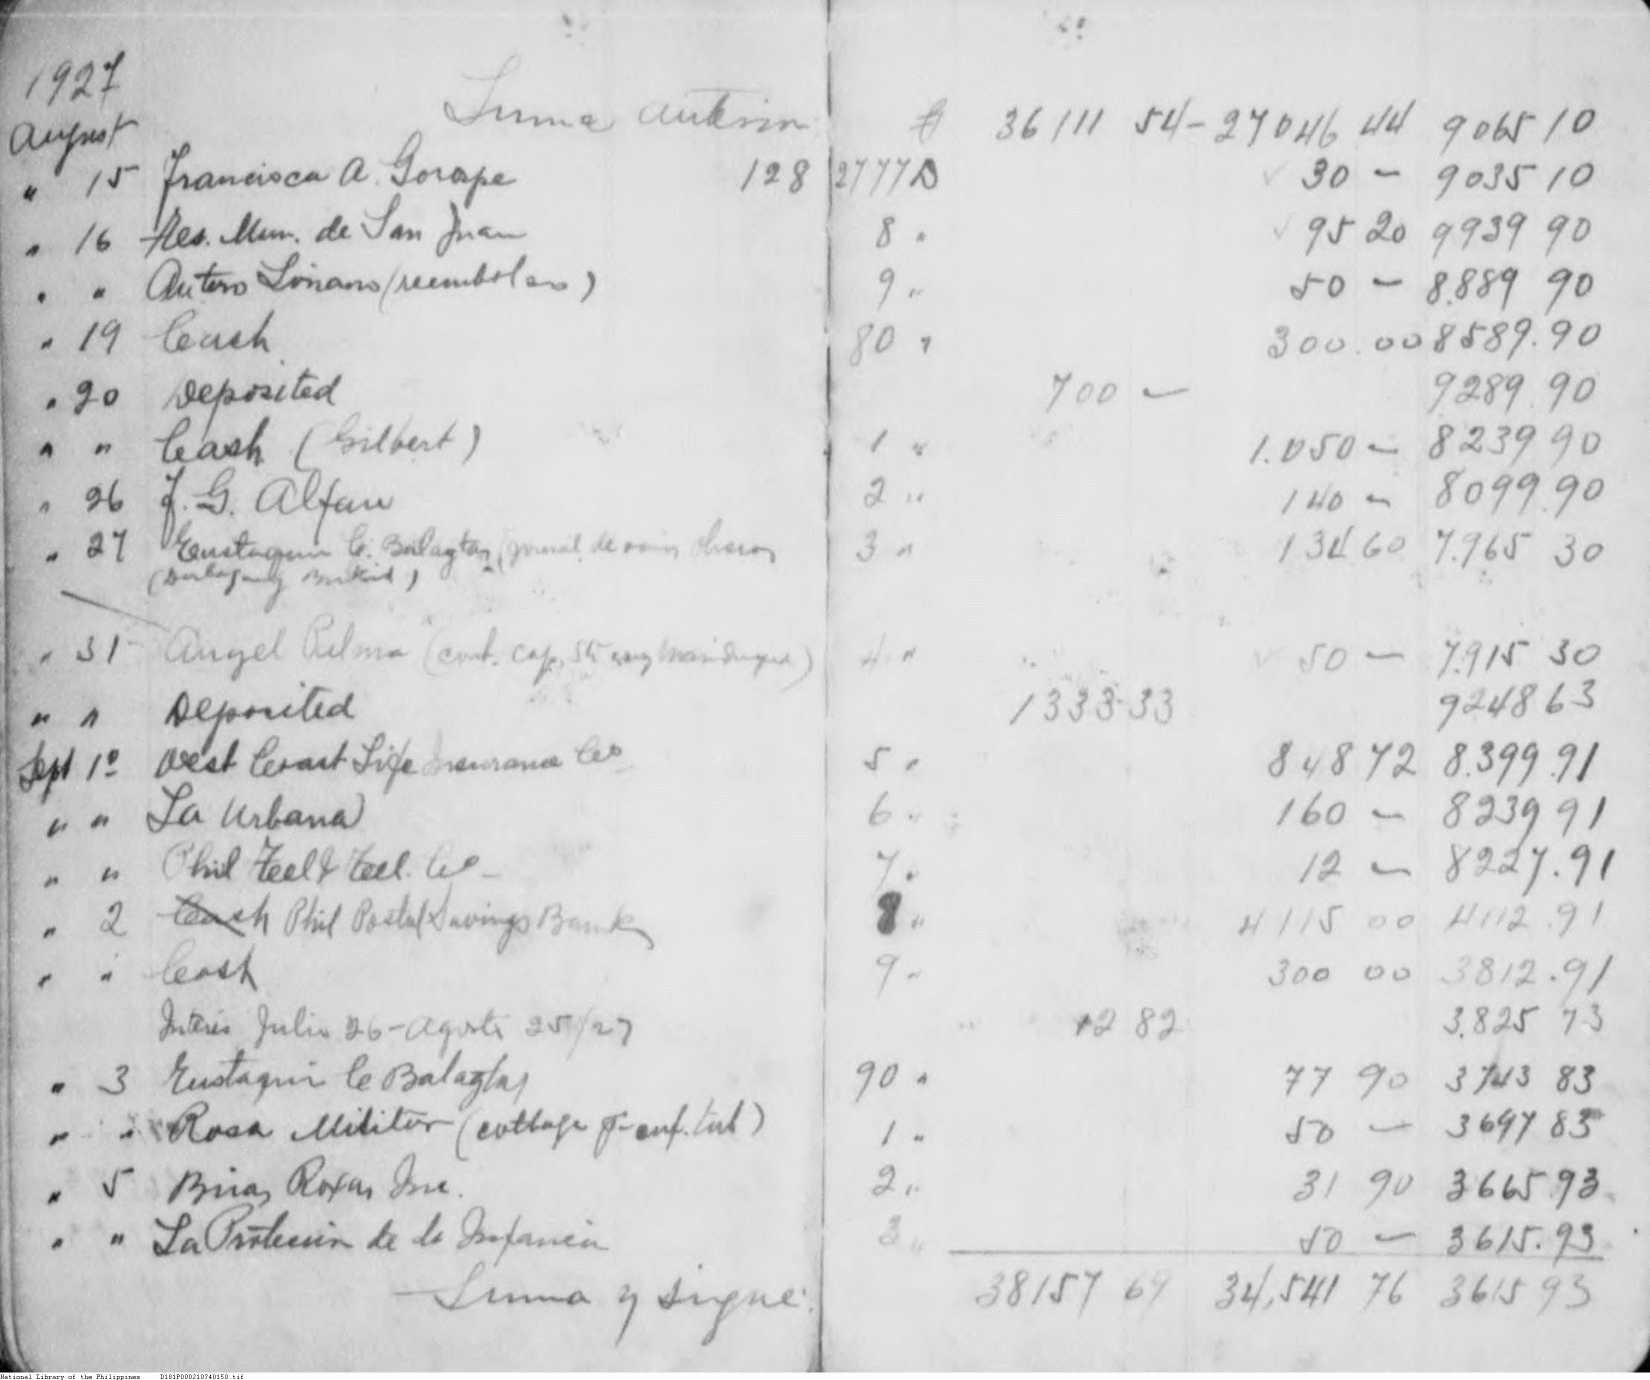 1927
August Suma anterior ₱ 36111 54 - 27046 44 9065 10
" 15 Francisca A. Gorospe 128 2777D 30 - 9035 10
" 16 Tes. Mun. de San Juan 8 " 95 20 9939 90
" " Antero Soriano (reembolso) 9 " 50 - 8.889 90
" 19 Cash 80 " 300.00 8589.90
" 20 Deposited 700 - 9289.90
" " Cash (Gilbert) 1 " 1.050 - 8239 90
" 26 J. G. Alfau 2 " 140 - 8099.90
" 27 Eustaquio C. Balagtas (jornal de obreros 3 " 134 60 7.965 30
" 31 Angel Palma (cont. cap. 4 " 50 - 7.915 30
" " Deposited 1333-33 9248 63
Sept 1º West Coast Life Insurance Co 5 " 848 72 8.399.91
" " La Urbana 6 " 160 - 8239 91
" " Phil Teel & Teel. Co - 7 " 12 - 8227.91
" 2 Cash Phil Postal Savings Bank 8 " 4115 00 4112.91
" " Cash 9 " 300 00 3812.91
Interes Julio 26 - Agosto 25/27 12 82 3.825 73
" 3 Eustaquio C Balagtas 90 " 77 90 3743 83
" " Rosa Militar (cottage 1 " 50 - 3697 83
" 5 Biras Roxas Inc. 2 " 31 90 3665 93
" " La Proteccion de la Infancia 3 " 50 - 3615.93
Suma y sigue: 38157 69 34,541 76 3615 93
National Library of the Philippines D181P000210740150.tif